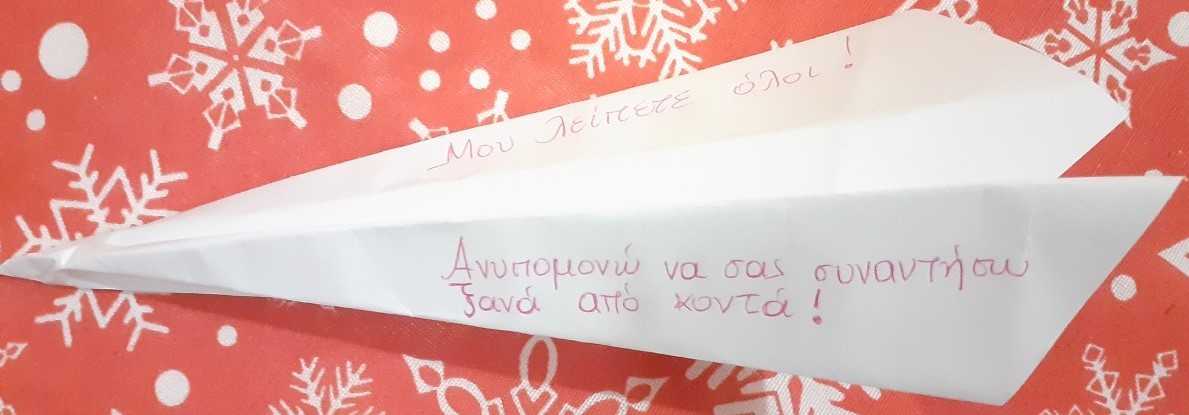 Μου λείπετε όλοι!
Ανυπομονώ να σας συναντήσω
ξανά από κοντά!